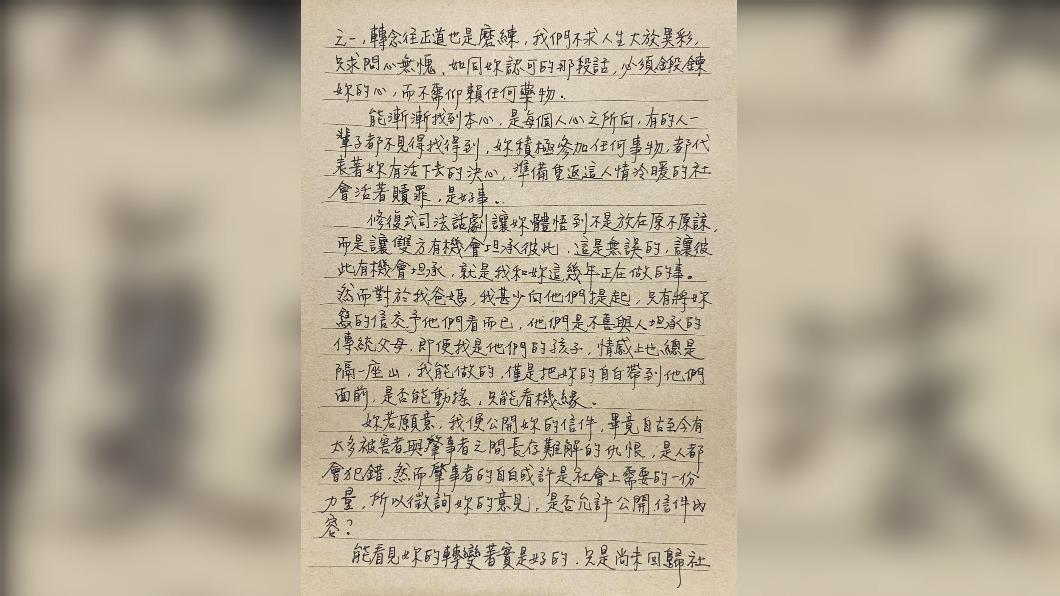 之一，轉念往正道也是磨練，我們不求人生大放異彩，
只求問心無愧，如同妳認可的那段話，必須鍛鍊
妳的心，而不需仰賴任何藥物。
能漸漸找到本心，是每個人心之所向，有的人一
輩子都不見得找得到，妳積極參加任何事物，都代
表著妳有活下去的決心，準備重返這人情冷暖的社
會活著贖罪，是好事。
修復式司法話劇讓妳體悟到不是放在原不原諒，
而是讓雙方有機會坦承彼此，這是無誤的，讓彼
此有機會坦承，就是我和妳這幾年正在做的事。
然而對於我爸媽，我甚少向他們提起，只有將妳
的信交予他們看而已，他們是不喜與人坦承的
傳統父母，即便我是他們的孩子，情感上也總是
隔一座山，我能做的，僅是把妳的自白帶到他們
面前，是否能動搖，只能看機緣。
妳若願意，我便公開妳的信件，畢竟自古至今有
太多被害者與肇事者之間長存難解的仇恨，是人都
會犯錯，然而肇事者的自白或許是社會上需要的一份
力量，所以徵詢妳的意見，是否允許公開信件內
容？
能看見妳的轉變著實是好的，只是尚未回歸社